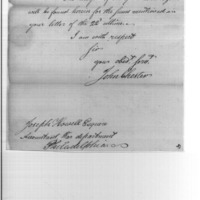 will be found herein for the sums mentioned in
your letter of the 22d
I am with respect
Sir
your obdt servt
John
Joseph Howell Esquire
Accountant War department
Philadelphia